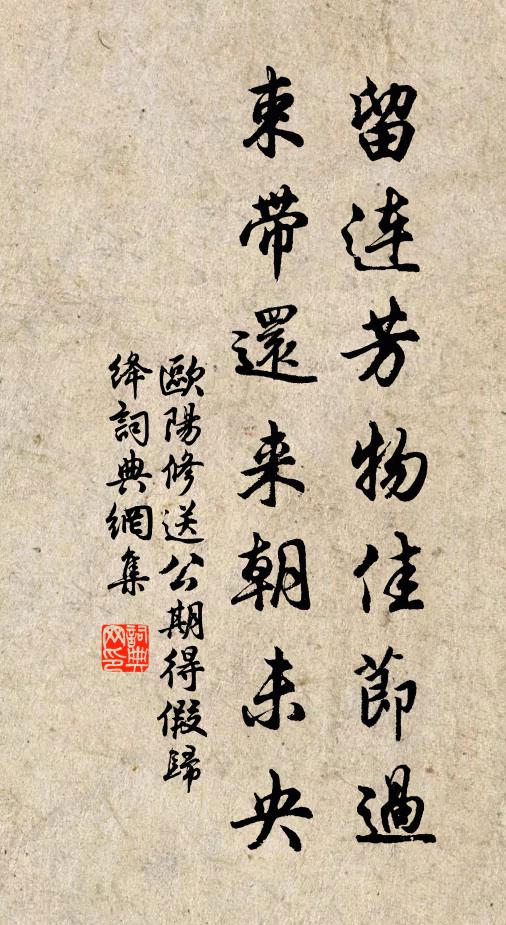 留連芳物佳節過
束帶還来朝未央
歐陽修送公期得假歸
絳詞典網集
詞典
网印